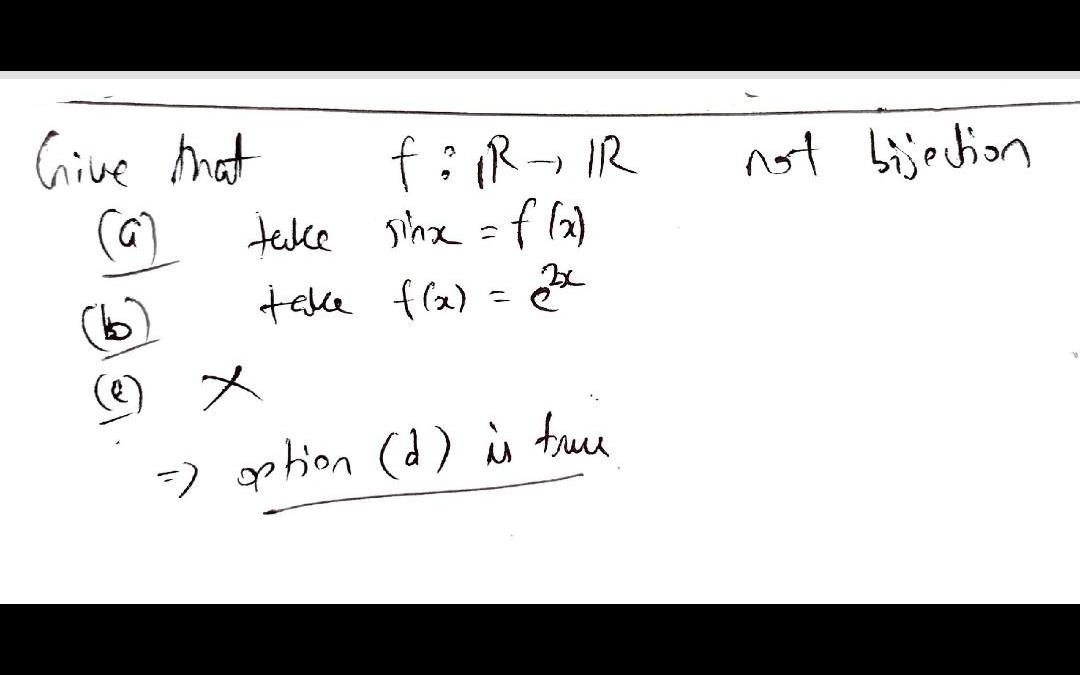 Give that f : ℝ → ℝ not bijection
(a) take sinx = f(x)
(b) take f(x) = e^2x
(c) ×
⇒ option (d) is true